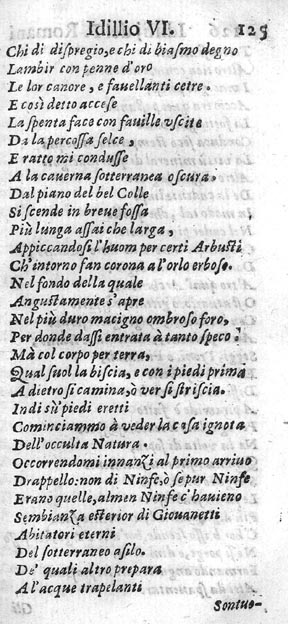 Idillio VI. 125
Chi di dispregio, e chi di biasmo degno
Lambir con penne d'oro
Le lor canore, e fauellanti cetre.
E così detto accese
La spenta face con fauille vscite
Da la percossa selce,
E ratto mi condusse
A la cauerna sotterranea oscura.
Dal piano del bel Colle
Si scende in breue fossa
Più lunga assai che larga,
Appiccandosi l'huom per certi Arbusti
Ch'intorno fan corona a l'orlo erboso.
Nel fondo della quale
Angustamente s'apre
Nel più duro macigno ombroso foro,
Per donde dassi entrata à tanto speco:
Mà col corpo per terra,
Qual suol la biscia, e con i piedi prima
A dietro si camina, ò ver si striscia.
Indi sù piedi eretti
Cominciammo à veder la cosa ignota
Dell'occulta Natura.
Occorrendomi innanzi al primo arriuo
Drappello: non di Ninfe, ò se pur Ninfe
Erano quelle, almen Ninfe c'hauieno
Sembianza esterior di Giouanetti
Abitatori eterni
Del sotterraneo asilo.
De' quali altro prepara
A l'acque trapelanti
Sontuo-